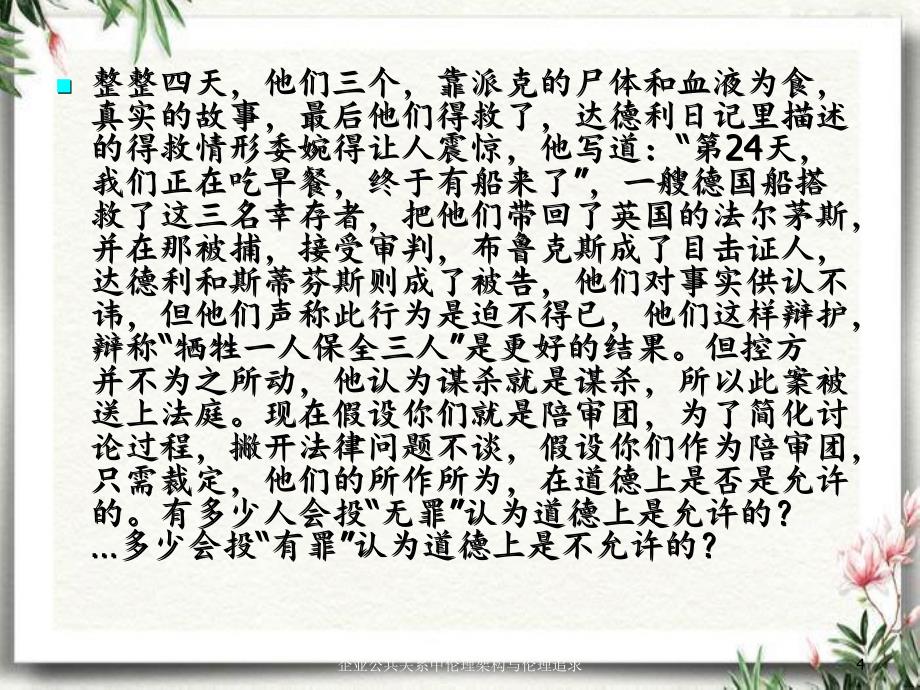 整整四天，他们三个，靠派克的尸体和血液为食，
真实的故事，最后他们得救了，达德利日记里描述
的得救情形委婉得让人震惊，他写道：“第24天，
我们正在吃早餐，终于有船来了”，一艘德国船搭
救了这三名幸存者，把他们带回了英国的法尔茅斯，
并在那被捕，接受审判，布鲁克斯成了目击证人，
达德利和斯蒂芬斯则成了被告，他们对事实供认不
讳，但他们声称此行为是迫不得已，他们这样辩护，
辩称“牺牲一人保全三人”是更好的结果。但控方
并不为之所动，他认为谋杀就是谋杀，所以此案被
送上法庭。现在假设你们就是陪审团，为了简化讨
论过程，撇开法律问题不谈，假设你们作为陪审团，
只需裁定，他们的所作所为，在道德上是否是允许
的。有多少人会投“无罪”认为道德上是允许的？
…多少会投“有罪”认为道德上是不允许的？
企业公共关系中伦理架构与伦理追求
4